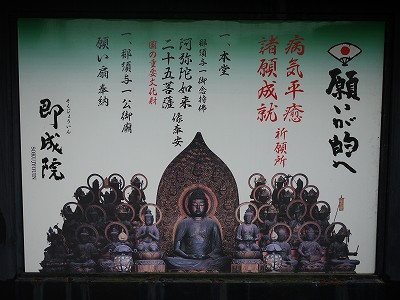 願いが的へ
病気平癒
諸願成就
祈願所
一、本堂
那須与一御念持佛
阿弥陀如来
二十五菩薩
像奉安
国の重要文化財
一、那須与一公御廟
願い扇 奉納
そくじょういん
即成院
SOKUJYOUIN